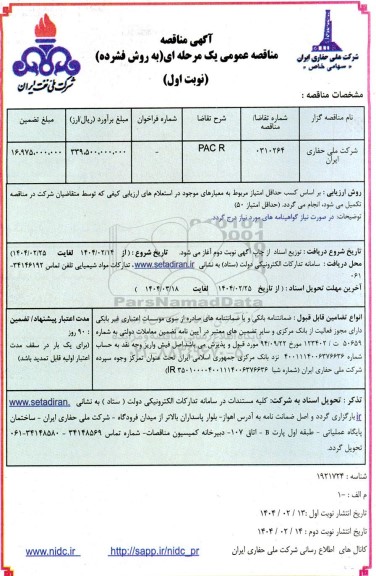 آگهی مناقصه
مناقصه عمومی یک مرحله ای(به روش فشرده)
(نوبت اول)
شرکت ملی حفاری ایران
سهامی خاص
شرکت ملی نفت ایران
مشخصات مناقصه :
نام مناقصه گزار | شماره تقاضا/ مناقصه | شرح تقاضا | شماره فراخوان | مبلغ برآورد (ریال/ارز) | مبلغ تضمین
شرکت ملی حفاری ایران | ۰۳۱۰۲۶۴ | PAC R | - | ۳۳۹,۵۰۰,۰۰۰,۰۰۰ | ۱۶,۹۷۵,۰۰۰,۰۰۰
روش ارزیابی : بر اساس کسب حداقل امتیاز مربوط به معیارهای موجود در استعلام های ارزیابی کیفی که توسط متقاضیان شرکت در مناقصه
تکمیل می شود، انجام می گردد. (حداقل امتیاز ۵۰)
توضیحات: در صورت نیاز گواهینامه های مورد نیاز درج گردد
تاریخ شروع دریافت : توزیع اسناد از چاپ آگهی نوبت دوم آغاز می شود تاریخ شروع : ( از ۱۴۰۴/۰۲/۱۴ لغایت ۱۴۰۴/۰۲/۲۵)
محل دریافت : سامانه تدارکات الکترونیکی دولت (ستاد) به نشانی www.setadiran.ir تدارکات مواد شیمیایی تلفن تماس ۳۴۱۴۶۱۹۲-
۰۶۱
آخرین مهلت تحویل اسناد : ( از تاریخ ۱۴۰۴/۰۲/۲۵ لغایت ۱۴۰۴/۰۳/۱۸ )
ParsNamadData
انواع تضامین قابل قبول : ضمانتنامه بانکی و یا ضمانتنامه های صادره از سوی موسسات اعتباری غیر بانکی
دارای مجوز فعالیت از بانک مرکزی و سایر تضمین های معتبر در آیین نامه تضمین معاملات دولتی به شماره
۱۲۳۴۰۲ / ت ۵۰۶۵۹ مورخ ۹۴/۰۹/۲۲ مورد قبول و پذیرش می باشد.اصل فیش واریز وجه نقد به حساب
شماره ۴۰۰۱۱۱۴۰۰۶۳۷۶۶۳۶ نزد بانک مرکزی جمهوری اسلامی ایران تحت عنوان تمرکز وجوه سپرده
شرکت ملی حفاری ایران (شماره شبا
مدت اعتبار پیشنهاد/ تضمین
: ۹۰ روز
(برای یک بار در سقف مدت
اعتبار اولیه قابل تمدید باشد)
تذکر : تحویل اسناد به شرکت: کلیه مستندات در سامانه تدارکات الکترونیکی دولت ( ستاد ) به نشانی www.setadiran.
ir بارگزاری گردد و اصل ضمانت نامه به آدرس اهواز- بلوار پاسداران بالاتر از میدان فرودگاه - شرکت ملی حفاری ایران - ساختمان
پایگاه عملیاتی - طبقه اول پارت B - اتاق ۱۰۷- دبیرخانه کمیسیون مناقصات- شماره تماس ۳۴۱۴۸۵۶۹ - ۳۴۱۴۸۵۸۰-۰۶۱
تحویل گردد.
شناسه : ۱۹۲۱۷۲۴
م الف :۱۰
تاریخ انتشار نوبت اول : ۱۳ / ۰۲ / ۱۴۰۴
تاریخ انتشار نوبت دوم : ۱۴ / ۰۲ / ۱۴۰۴
کانال های اطلاع رسانی شرکت ملی حفاری ایران http://sapp.ir/nidc_pr www.nidc.ir